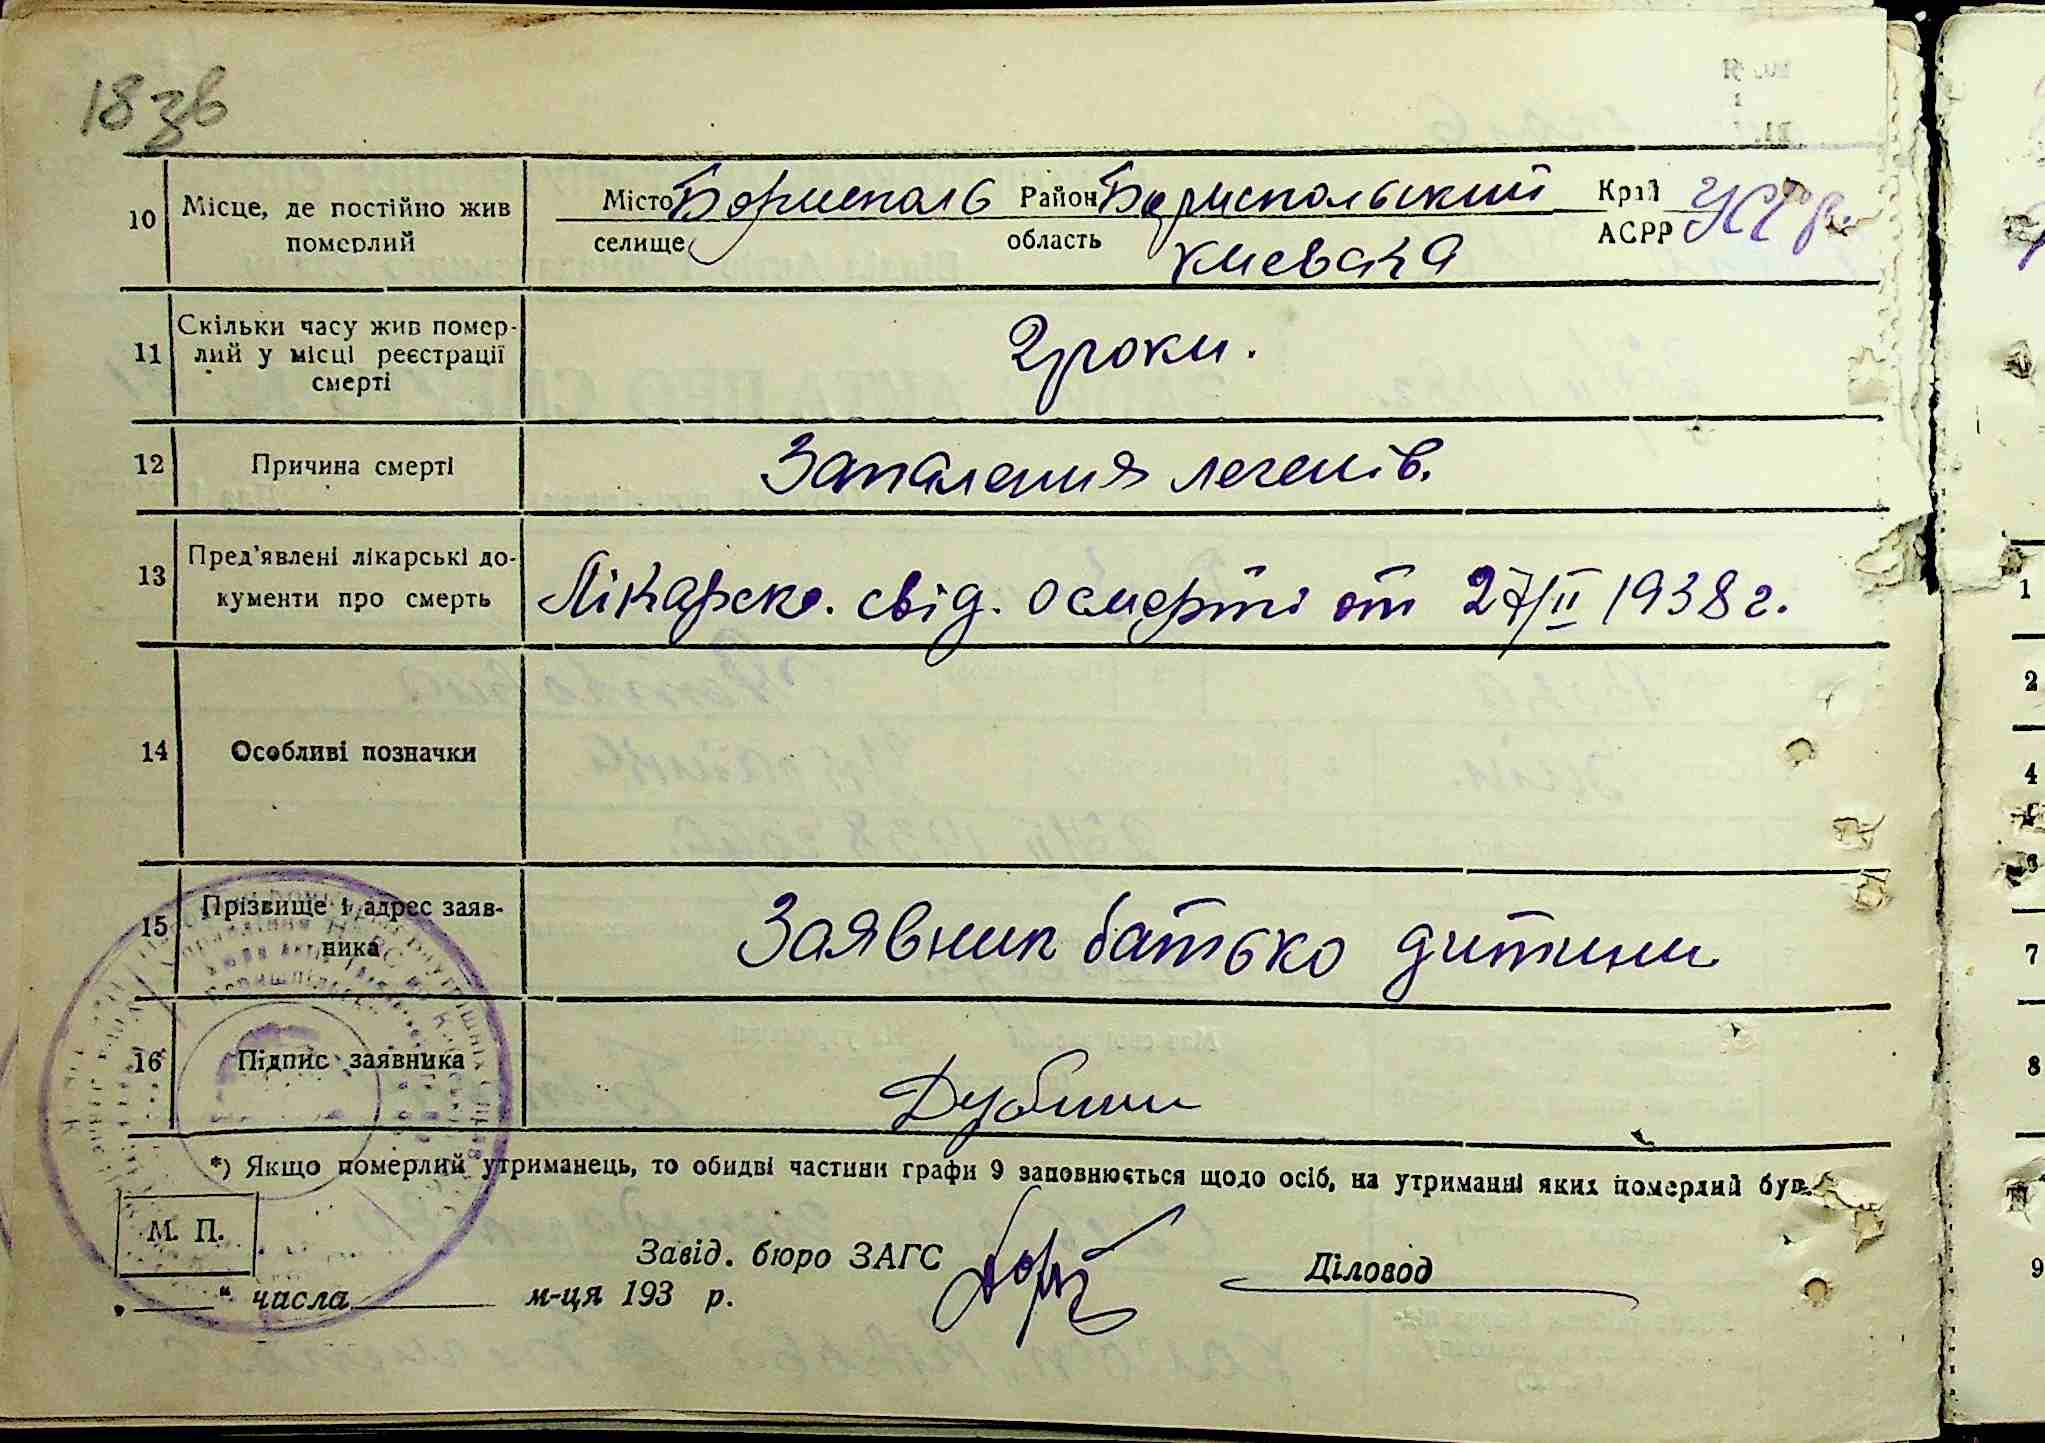 18 зв
10 Місце, де постійно жив померлий
Місто Бориспаль Район Бориспольский Край УССР.
селище область Киевска АСРР
11 Скільки часу жив помер-
лий у місці реєстрації
смерті
2 роки.
12 Причина смерті Запалення легенів.
13 Пред'явлені лікарські до-
кументи про смерть
Лікарско. свід. о смерті от 27/II 1938 г.
14 Особливі позначки
15 Прізвище і адрес заяв-
ника
Заявник батько дитини
16 Підпис заявника Дубини
*) Якщо померлий утриманець, то обидві частини графи 9 заповнюється щодо осіб, на утриманні яких померлий був.
М. П.
Завід. бюро ЗАГС Діловод
„ “ числа м-ця 193 р.
1
2
4
7
8
9